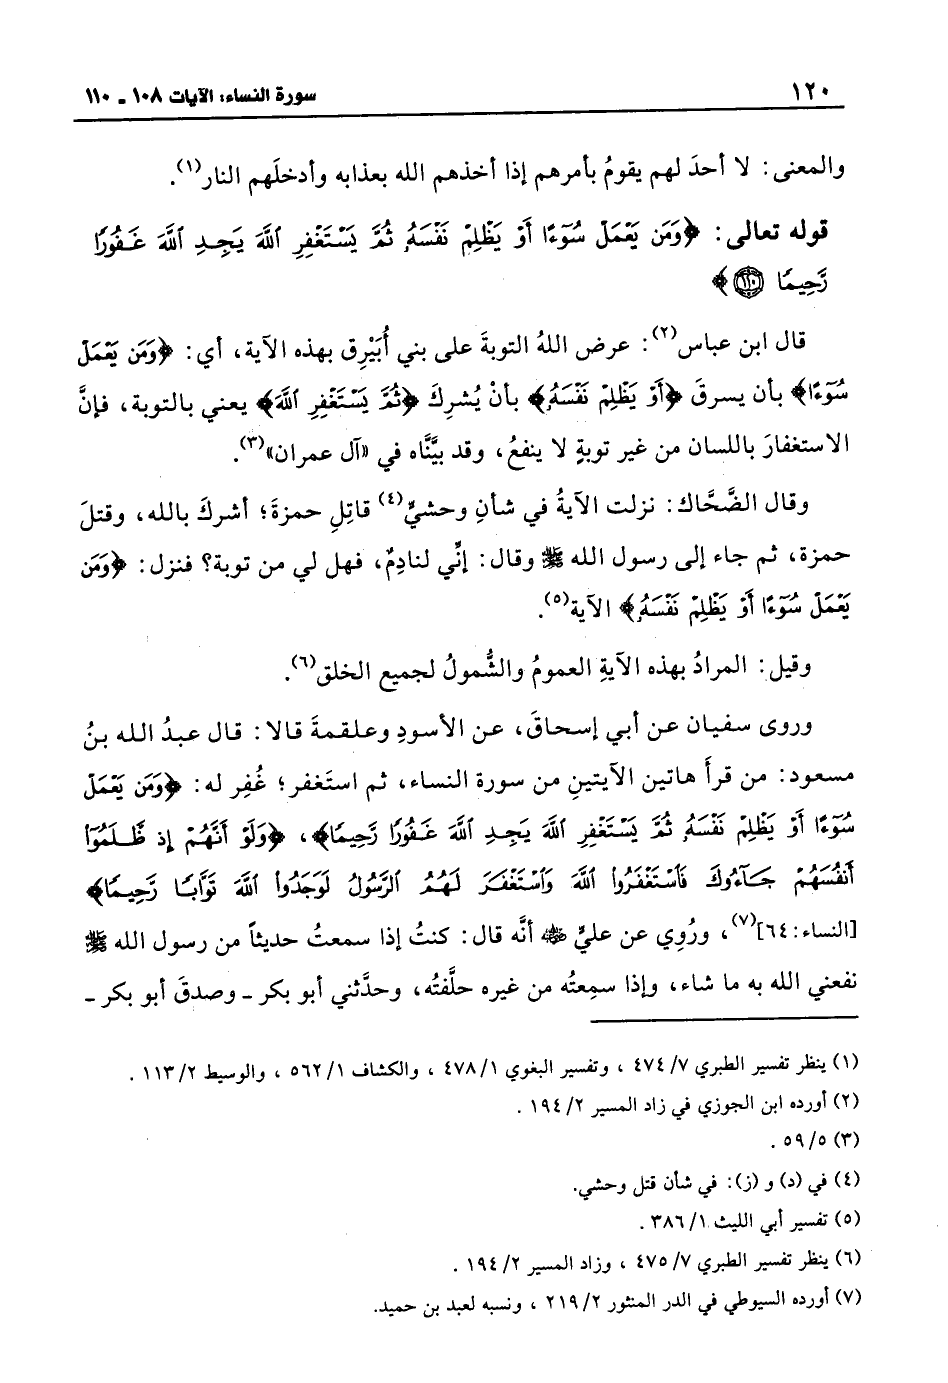 ١٢٠ سورة النساء: الآيات ١٠٨ ـ ١١٠
والمعنى: لا أحدَ لهم يقومُ بأمرهم إذا أخذهم الله بعذابه وأدخلَهم النار(١).
قوله تعالى: ﴿وَمَن يَعْمَلْ سُوٓءًا أَوْ يَظْلِمْ نَفْسَهُۥ ثُمَّ يَسْتَغْفِرِ ٱللَّهَ يَجِدِ ٱللَّهَ غَفُورًا
رَّحِيمًا ۝١١٠﴾
قال ابن عباس(٢): عرض اللهُ التوبةَ على بني أُبَيْرِق بهذه الآية، أي: ﴿وَمَن يَعْمَلْ
سُوٓءًا﴾ بأن يسرقَ ﴿أَوْ يَظْلِمْ نَفْسَهُۥ﴾ بأنْ يُشرِكَ ﴿ثُمَّ يَسْتَغْفِرِ ٱللَّهَ﴾ يعني بالتوبة، فإنَّ
الاستغفارَ باللسان من غير توبةٍ لا ينفعُ، وقد بيَّنَّاه في «آل عمران»(٣).
وقال الضَّحَّاك: نزلت الآيةُ في شأنِ وحشيٍّ(٤) قاتِلِ حمزةَ؛ أشركَ بالله، وقتلَ
حمزة، ثم جاء إلى رسول الله ﷺ وقال: إنِّي لنادِمٌ، فهل لي من توبة؟ فنزل: ﴿وَمَن
يَعْمَلْ سُوٓءًا أَوْ يَظْلِمْ نَفْسَهُۥ﴾ الآية(٥).
وقيل: المرادُ بهذه الآيةِ العمومُ والشُّمولُ لجميع الخلق(٦).
وروى سفيان عن أبي إسحاقَ، عن الأسودِ وعلقمةَ قالا: قال عبدُ الله بنُ
مسعود: من قرأَ هاتين الآيتينِ من سورة النساء، ثم استَغفر؛ غُفِر له: ﴿وَمَن يَعْمَلْ
سُوٓءًا أَوْ يَظْلِمْ نَفْسَهُۥ ثُمَّ يَسْتَغْفِرِ ٱللَّهَ يَجِدِ ٱللَّهَ غَفُورًا رَّحِيمًا﴾، ﴿وَلَوْ أَنَّهُمْ إِذ ظَّلَمُوٓا۟
أَنفُسَهُمْ جَآءُوكَ فَٱسْتَغْفَرُوا۟ ٱللَّهَ وَٱسْتَغْفَرَ لَهُمُ ٱلرَّسُولُ لَوَجَدُوا۟ ٱللَّهَ تَوَّابًا رَّحِيمًا﴾
[النساء: ٦٤](٧)، ورُوِي عن عليٍّ ﵁ أنَّه قال: كنتُ إذا سمعتُ حديثاً من رسول الله ﷺ
نفعني الله به ما شاء، وإذا سمِعتُه من غيره حلَّفتُه، وحدَّثني أبو بكر ـ وصدقَ أبو بكر ـ
(١) ينظر تفسير الطبري ٧/ ٤٧٤ ، وتفسير البغوي ١/ ٤٧٨ ، والكشاف ١/ ٥٦٢ ، والوسيط ٢/ ١١٣ .
(٢) أورده ابن الجوزي في زاد المسير ٢/ ١٩٤ .
(٣) ٥/ ٥٩ .
(٤) في (د) و (ز): في شأن قتل وحشي.
(٥) تفسير أبي الليث ١/ ٣٨٦ .
(٦) ينظر تفسير الطبري ٧/ ٤٧٥ ، وزاد المسير ٢/ ١٩٤ .
(٧) أورده السيوطي في الدر المنثور ٢/ ٢١٩ ، ونسبه لعبد بن حميد.